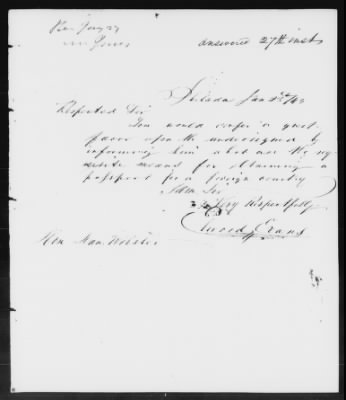 Rec Jany 27
Mr Jones
answered 27th inst
Philada Jan 25/43
Respected Sir
You would confer a great
favor upon the undersigned by
informing him what are the req
uisite means for obtaining a
passport for a foreign country
I am Sir
Very Respectfully
Elwood Evans
Hon Dan. Webster